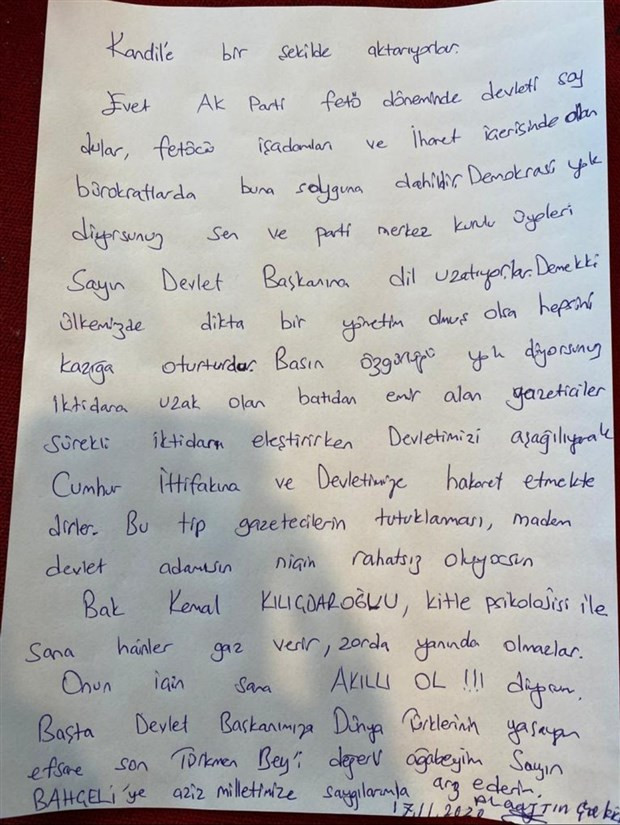 Kandil'e bir şekilde aktarıyorlar.
Evet AK Parti fetö döneminde devleti soy
dular, fetöcü işadamları ve İharet içerisinde olan
bürokratlarda buna soyguna dahildir. Demokrasi yok
diyorsunuz sen ve parti merkez kurulu üyeleri
Sayın Devlet Başkanına dil uzatıyorlar. Demekki
ülkemizde dikta bir yönetim olmuş olsa hepsini
kazığa oturturdu. Basın özgürlüğü yok diyorsunuz
iktidara uzak olan batıdan emir alan gazeticiler
sürekli iktidarı eleştirirken Devletimizi aşağılıyarak
Cumhur İttifakına ve Devletimize hakaret etmekte
dirler. Bu tip gazetecilerin tutuklaması, madem
devlet adamısın niçin rahatsız oluyorsun
Bak Kemal KILIÇDAROĞLU, kitle psikolojisi ile
Sana hainler gaz verir, zorda yanında olmazlar.
Onun için sana AKILLI OL !!! diyorum.
Başta Devlet Başkanımıza Dünya Türklerinin yaşayan
efsane son Türkmen Bey'i değerli ağabeyim Sayın
BAHÇELİ'ye aziz milletimize saygılarımla arz ederim.
17.11.2020 Alaattin Çakıcı